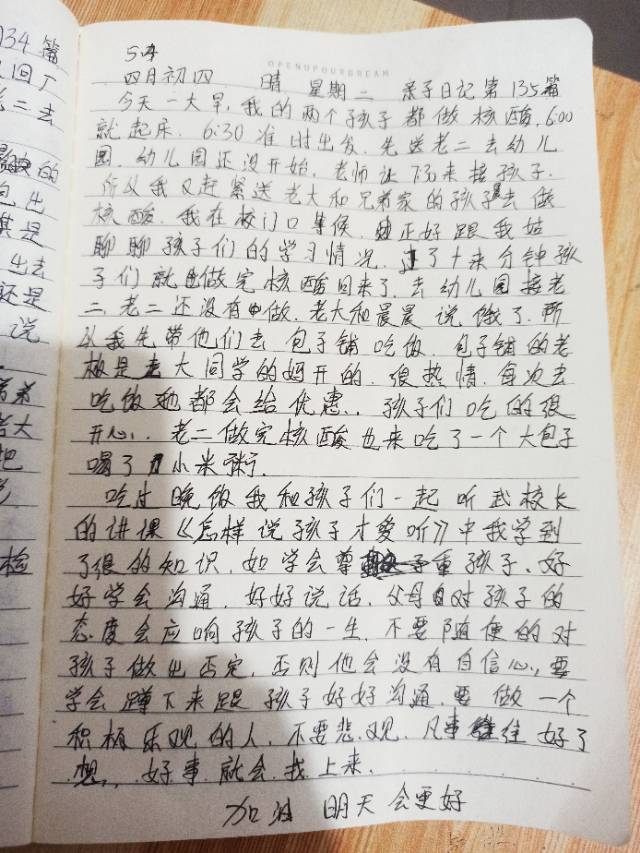 134篇
回厂
老二去
的
包出
其是
出去
还是
说
OPENUPYOURDREAM
四月初四 晴 星期二 亲子日记第135篇
今天一大早,我的两个孩子都做核酸,6:00
就起床。6:30准时出发。先送老二去幼儿
园,幼儿园还没开始,老师让下午来接孩子.
所以我又赶紧送老大和兄弟家的孩子去做
核酸.我在校门口等候,正好跟我姑
聊聊孩子们的学习情况.了十来分钟孩
子们就做完核酸回来了.去幼儿园接老
二,老二还没有做.老大和晨晨说饿了.所
以我先带他们去包子铺吃饭.包子铺的老
板是老大同学的妈开的.很热情.每次去
吃饭她都会给优惠.孩子们吃的很
开心.老二做完核酸也来吃了一个大包子
喝了小米粥.
吃过晚饭我和孩子们一起听武校长
的讲课《怎样说孩子才爱听》中我学到
了很的知识.如学会尊重孩子、好
好学会沟通.好好说话.父母对孩子的
态度会应响孩子的一生.不要随便的对
孩子做出否定,否则他会没有自信心,要
学会蹲下来跟孩子好好沟通.要做一个
积极乐观的人.不要悲观.凡事往好了
想,好事就会找上来.
加油 明天会更好